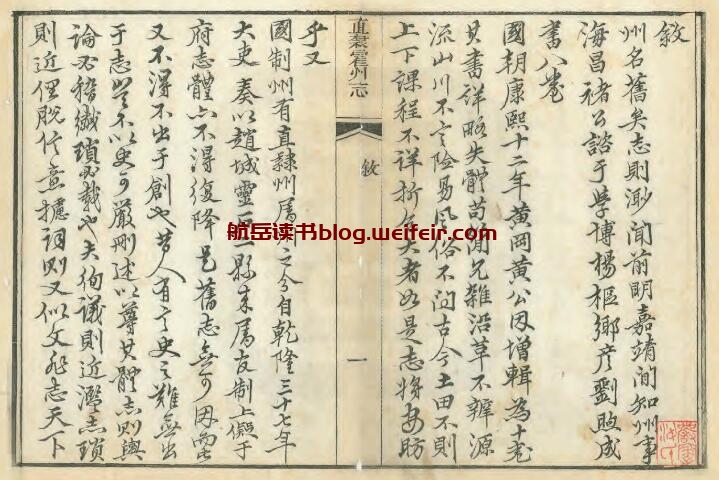 敘
州名舊矣志則渺聞前明嘉靖間知州事
海昌褚公諮于學博楊樞鄉彥劉昫成
書八卷
國朝康熙十二年黃岡黃公因增輯為十卷
其書詳略失體苟簡冗雜沿革不辨源
流山川不言險易風俗不問古今土田不則
上下課程不詳折知夫者如是志將安昉
乎又
國制州有直隸州屬州之分自乾隆三十七年
大吏奏以趙城靈石二縣來屬友制上儗于
府志體亦不得復降是舊志無可因
又不得不出于創也昔人有言史之難無出
于志豈不以史可嚴刪述以尊其體志則與
論必稽纖瑣必載也夫徇議則近濫志瑣
則近俚脫任意攄詞則又似文非志天下
直隸霍州志
敘
一
航岳读书blog.weifeir.com